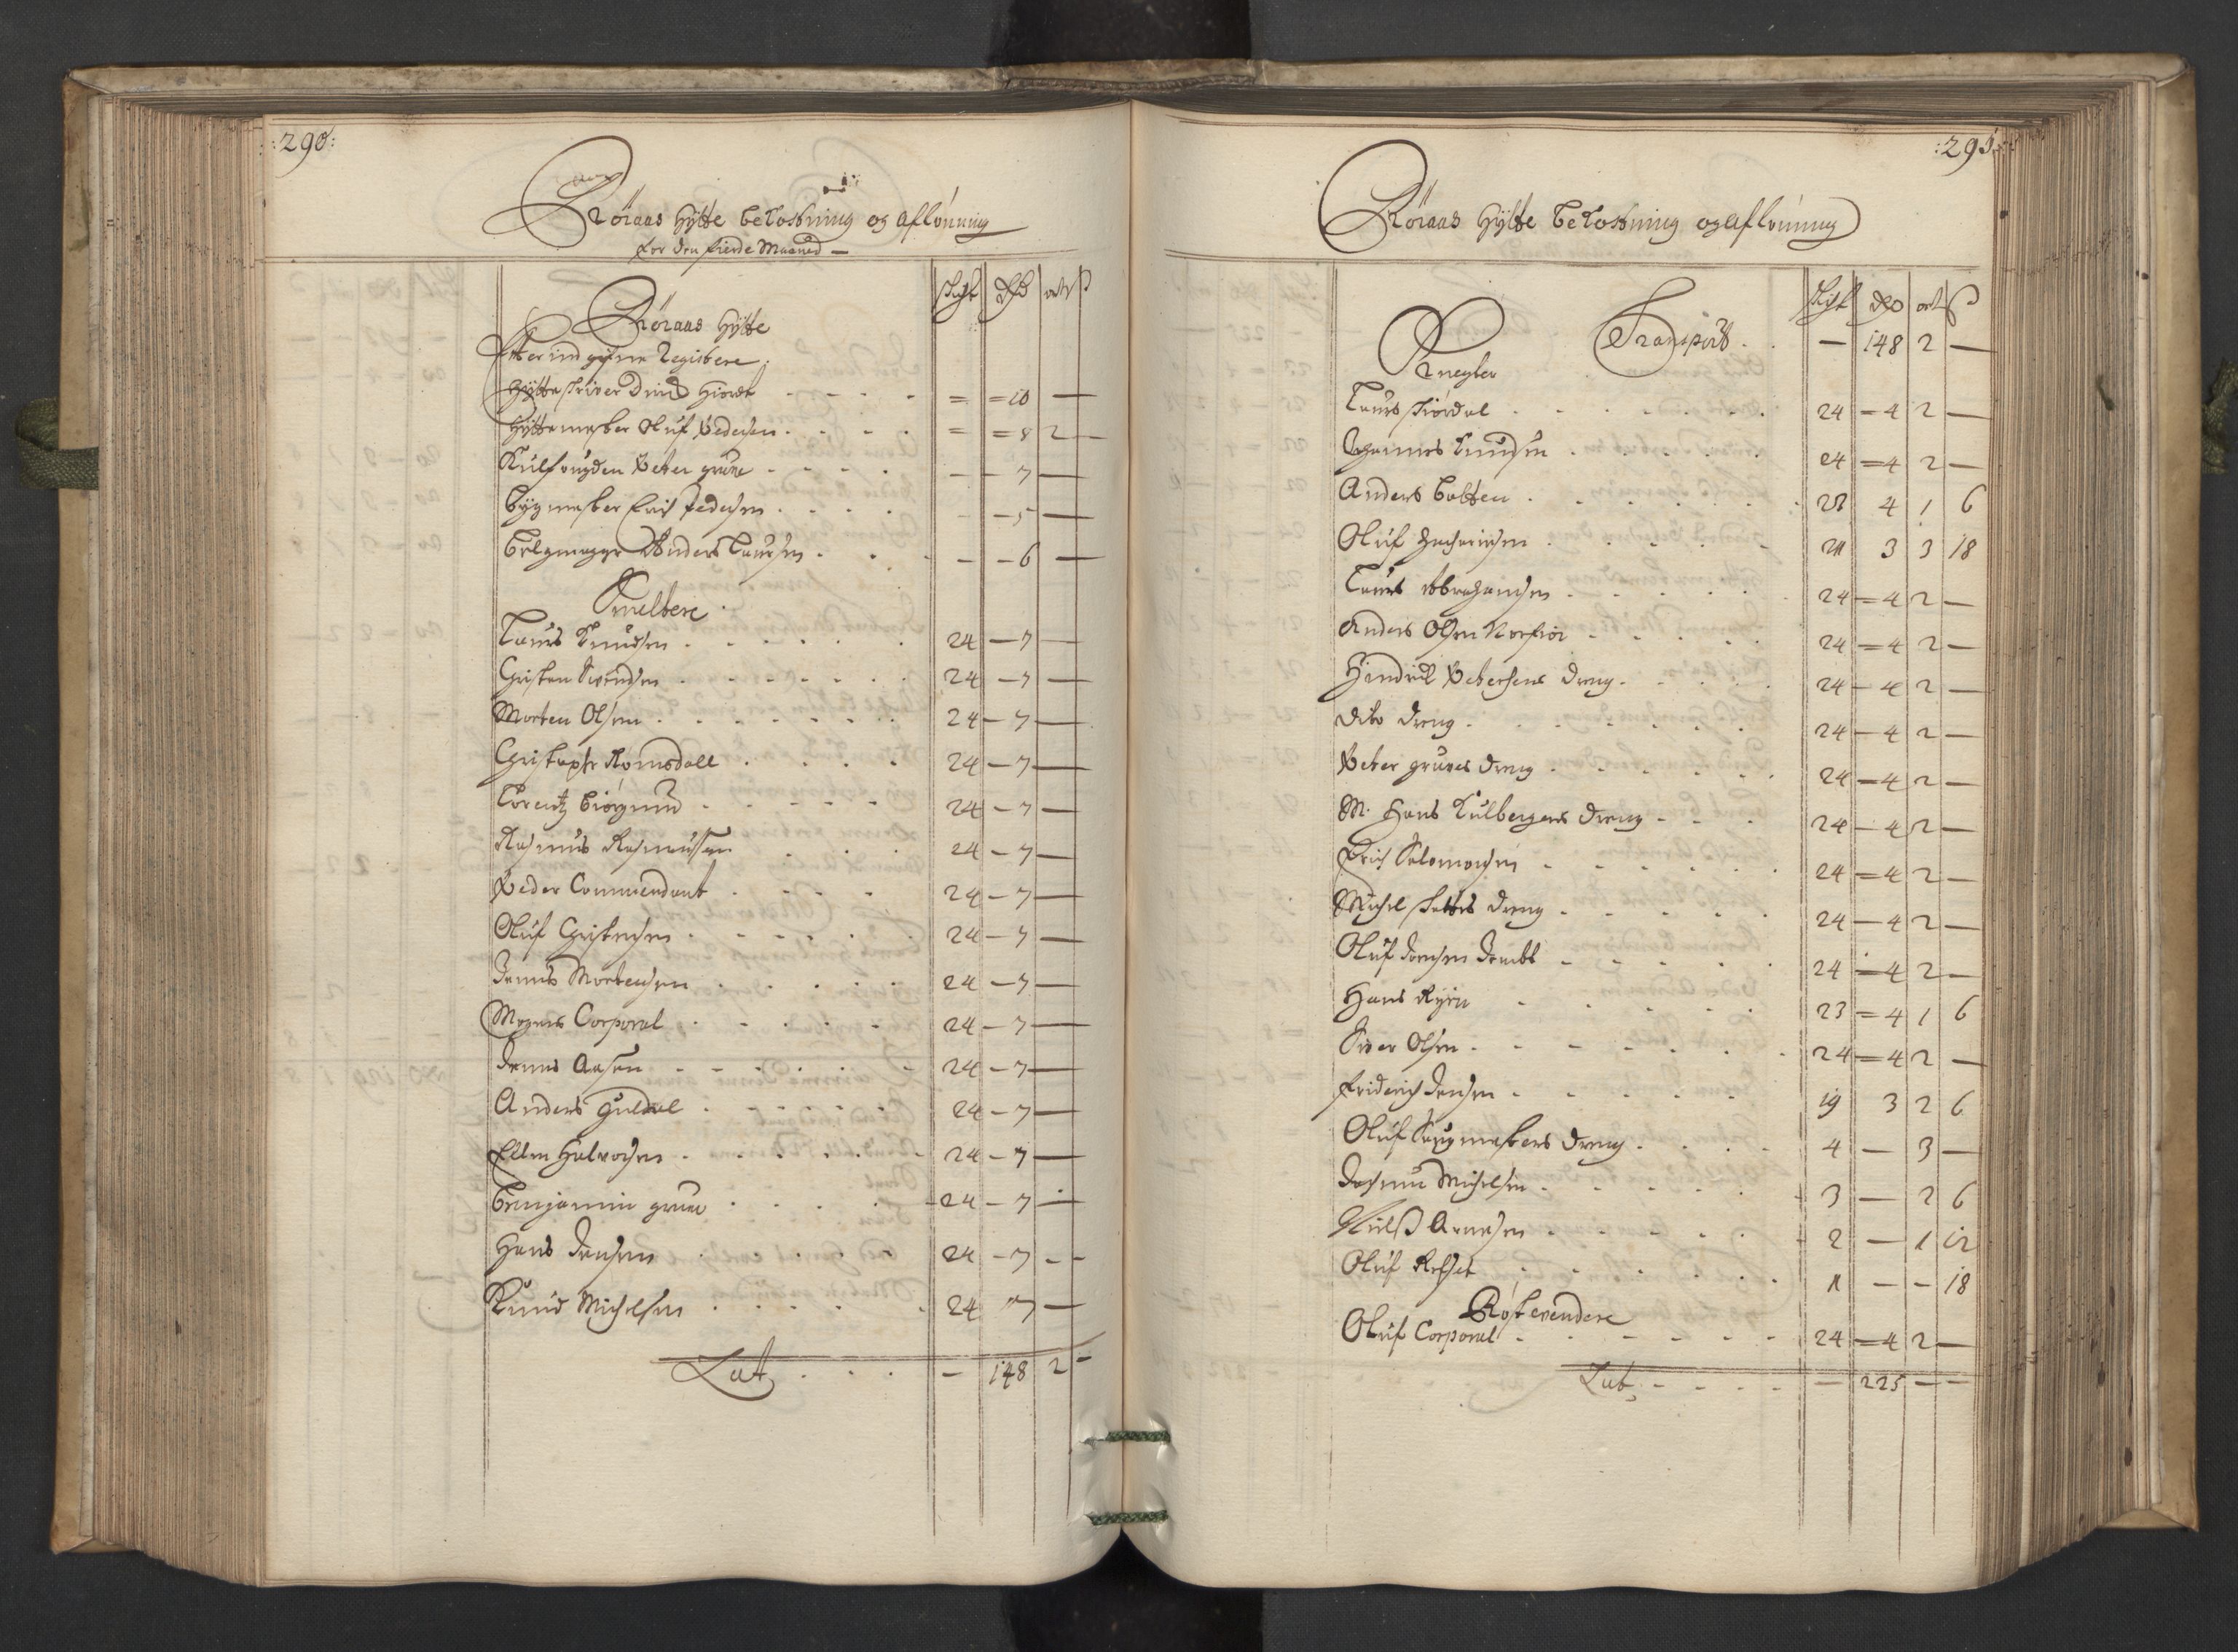 :290:
Röraas Hÿtte bekostning og aflönning
for den fierde Maaned
Skigt Rdr ort ß
Röraas Hÿtte
Efter indgifne Registere;
Hÿtteskriver Hiordt = = 10 —
Hÿttemester Oluf Pedersen = = 8 2 —
Kulfougden Peter grue — — 7 —
Bÿgmester Erich Pedersen — — 5 —
Belgmager Anders Laursen — — 6 —
Smeltere
Laurs Knudsen 24 — 7 —
Christen Svendsen 24 — 7 —
Morten Olsen 24 — 7 —
Christopher Romsdall 24 — 7 —
Lorentz Biörgund 24 — 7 —
Rasmus Rasmussen 24 — 7 —
Peder Commendant 24 — 7 —
Oluf Christensen 24 — 7 —
Jenns Mortensen 24 — 7 —
Mogens Corporal 24 — 7 —
Jenns Aasen 24 — 7 —
Anders Guldal 24 — 7 —
Ellen Halvorsen 24 — 7 —
Benjamin grue 24 — 7 —
Hans Jensen 24 — 7 — —
Knud Michelsen 24 7 —
Lat — 148 2 —
:291:
Röraas Hÿtte bekostning og aflönning
Skigt Rdr ort ß
Transport — 148 2 —
Knegter
Laurs Skiördal 24 = 4 2 —
Johannes Knudsen 24 = 4 2 —
Anders Bolten 23 4 1 6
Oluf Zachariesen 21 3 3 18
Laurs Abrahamsen 24 = 4 2 —
Anders Olsen 24 = 4 2 —
Hindrich Petersens dreng 24 — 4 2 —
dito dreng 24 — 4 2 —
Peter grues dreng 24 = 4 2 —
M. Hans Kulbergers dreng 24 — 4 2 —
Erich Salomonsen 24 = 4 2 —
Michel dreng 24 — 4 2 —
Oluf Joensen 24 = 4 2 —
Hans Ryen 23 = 4 1 6
Siver Olsen 24 = 4 2 —
Friderich Jensen 19 3 2 6
Oluf Saugmesters dreng 4 — 3 —
Rasmus Michelsen 3 — 2 6
Nielß Arnesen 2 — 1 12
Oluf 1 — — 18
Röstevendere
Oluf Corporal 24 = 4 2 —
Lat — 225 — —